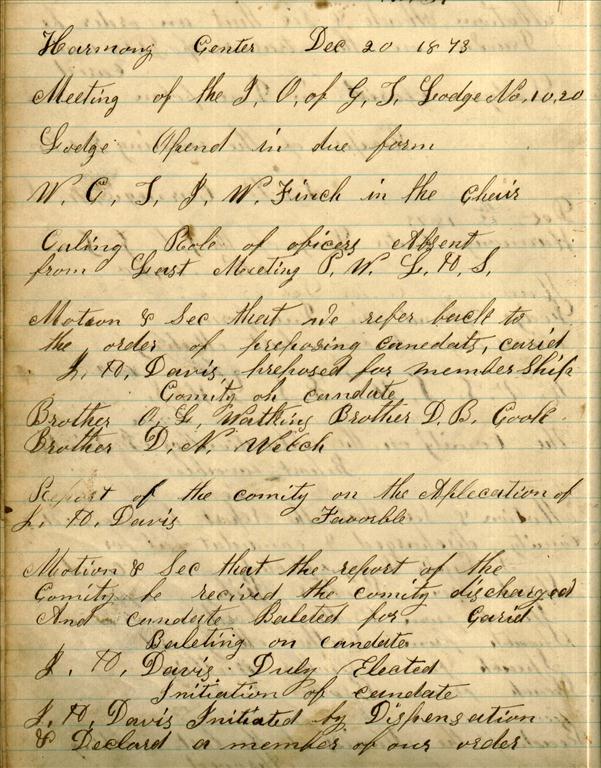 Harmony Center Dec 20 1873
Meeting of the I. O. of G. T. Lodge No. 10,20
Lodge Opend in due form
W. C. T. J. W. Finch in the Chair
Caling Role of oficers Absent
from Last Meeting P. W. L. H. S.
Motion & Sec that we refer back to
the order of preposing canedats, carid
J. H. Davis, preposed for member Ship
Comity on candate
Brother O. L. Watkins Brother D. B. Cook
Brother D. N. Welch
Report of the comity on the Aplecation of
J. H. Davis Favorble
Motion & Sec that the report of the
Comity be recived the comity discharged
And candate Baleted for. Carid
Baleting on candate
J. H. Davis Duly Elected
Initiation of candate
J. H. Davis Initiated by Dispensation
& Declard a member of our order